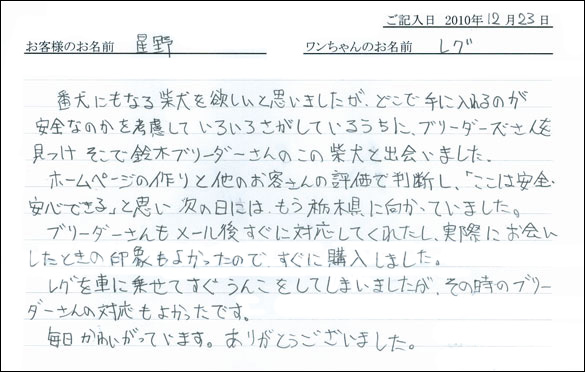 ご記入日 2010年12月23日
お客様のお名前 星野 ワンちゃんのお名前 レグ
番犬にもなる柴犬を欲しいと思いましたが、どこで手に入れるのが
安全なのかを考慮していろいろさがしているうちに、ブリーダーズさんを
見つけそこで鈴木ブリーダーさんのこの柴犬と出会いました。
ホームページの作りと他のお客さんの評価で判断し、「ここは安全・
安心できる」と思い次の日には、もう栃木県に向かっていました。
ブリーダーさんもメール後すぐに対応してくれたし、実際にお会い
したときの印象もよかったので、すぐに購入しました。
レグを車に乗せてすぐうんこをしてしまいましたが、その時のブリー
ダーさんの対応もよかったです。
毎日かわいがっています。ありがとうございました。